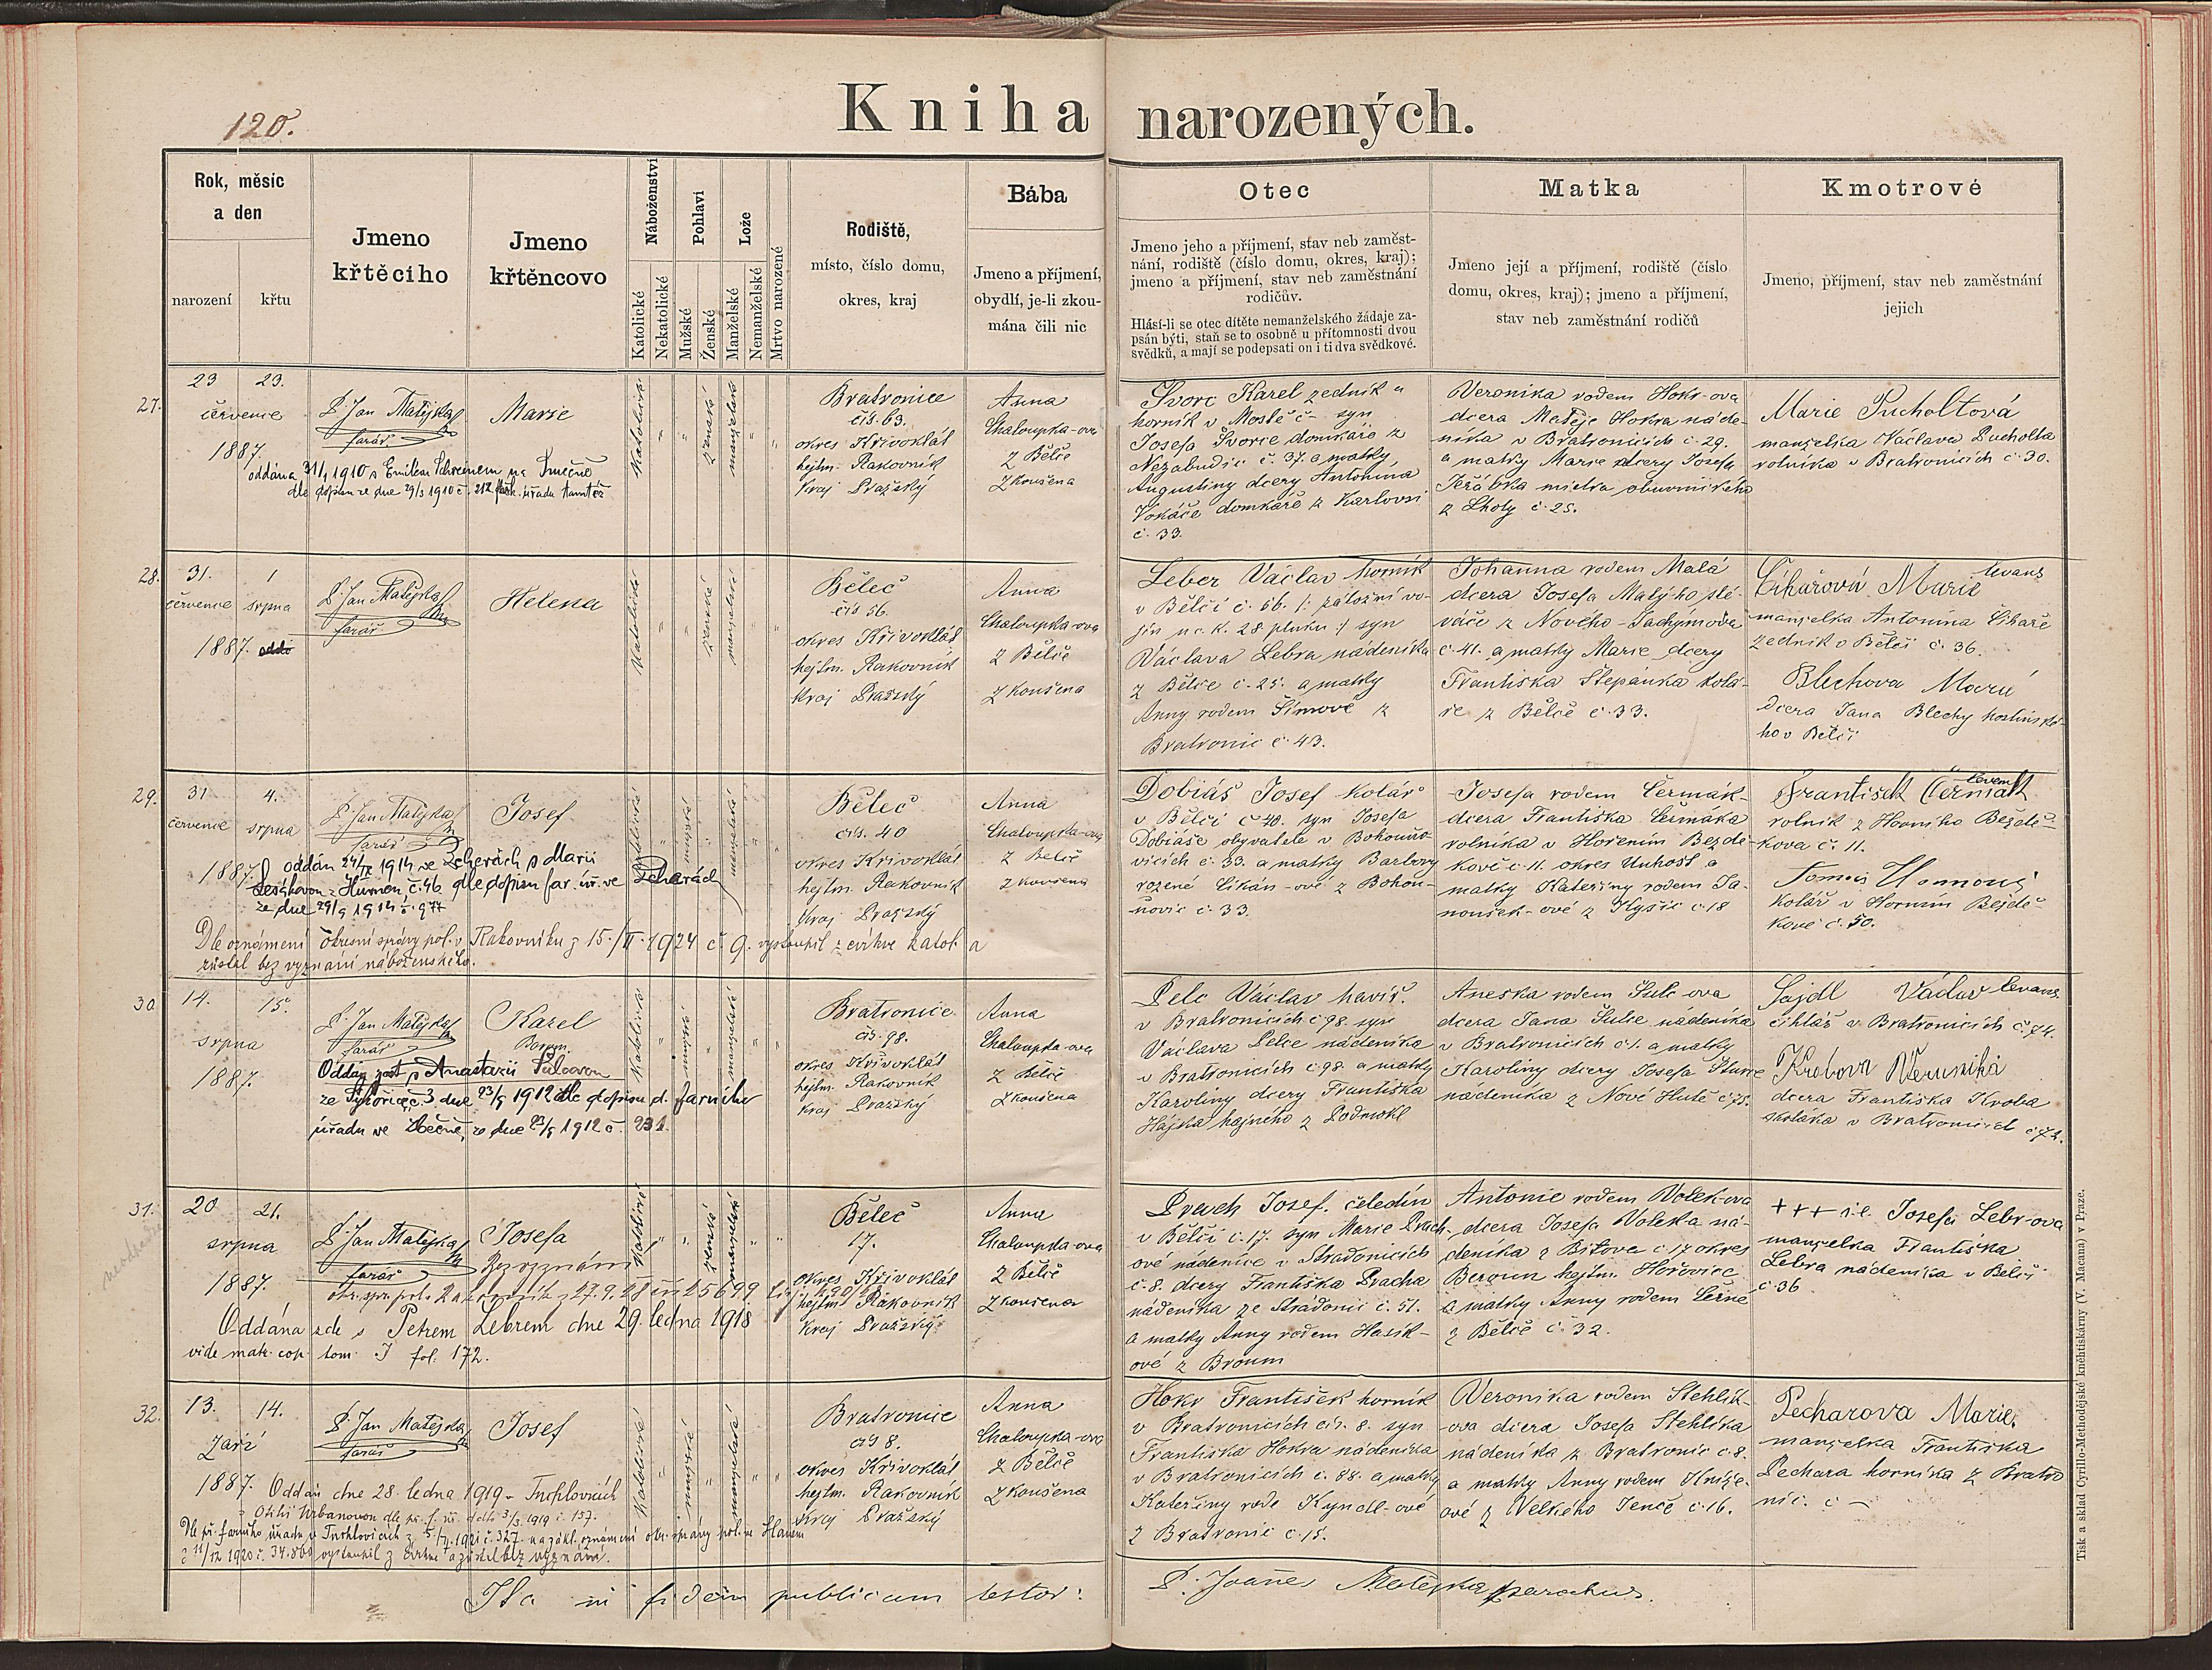 120.
Kniha narozených.
Rok, měsíc
a den
narození
křtu
Jmeno
křtěcího
Jmeno
křtěncovo
Náboženství
Katolické
Nekatolické
Pohlaví
Mužské
Ženské
Lože
Manželské
Nemanželské
Mrtvo narozené
Rodiště,
místo, číslo domu,
okres, kraj
Bába
Jmeno a příjmení,
obydlí, je-li zkou-
mána čili nic
Otec
Jmeno jeho a příjmení, stav neb zaměst-
nání, rodiště (číslo domu, okres, kraj);
jmeno a příjmení, stav neb zaměstnání
rodičův.
Hlásí-li se otec dítěte nemanželského žádaje za-
psán býti, staň se to osobně u přítomnosti dvou
svědků, a mají se podepsati on i ti dva svědkové.
Matka
Jmeno její a příjmení, rodiště (číslo
domu, okres, kraj); jmeno a příjmení,
stav neb zaměstnání rodičů
Kmotrové
Jmeno, příjmení, stav neb zaměstnání
jejich
27.
23 23.
července
1887.
P. Jan Matějka
farář
Marie
Katolické
ženské
manželské
Bratronice
čís. 63.
okres Křivoklát
hejtm. Rakovník
Kraj Pražský
Anna
Chaloupka-ova
z Bělče
Zkoušena
Švorc Karel zedník a
horník v Mostě č – syn
Josefa Švorce domkáře z
Nezabudic č. 37. a matky
Augustiny dcery Antonína
Vokáče domkáře z Karlovsi
č. 33.
Veronika rodem Hokr-ova
dcera Matěje Hokra náde-
níka v Bratronicích č. 29.
a matky Marie dcery Josefa
Jeřábka mistra obuvnického
z Lhoty č. 25.
Marie Pucholtová
manželka Václava Pucholta
rolníka v Bratronicích č. 30.
oddána 31/1 1910 s Emilem
dle dopisu ze dne 29/3 1910 č. 212 úřadu tamtéž
28.
31. 1
července srpna
1887.
P. Jan Matějka
farář
Helena
Katolické
ženské
manželské
Běleč
čís 56.
okres Křivoklát
hejtm. Rakovník
Kraj Pražský
Anna
Chaloupka-ova
z Bělče
Zkoušena
Leber Václav horník
v Bělči č. 56. /: záložní vo-
jín u c. k. 28 pluku :/ syn
Václava Lebra nádeníka
z Bělče č. 25. a matky
Anny rodem Šímové z
Bratronic č. 43.
Johanna rodem Malá
dcera Josefa Malýho slé-
váče z Nového-Jáchymova
č. 41. a matky Marie dcery
Františka Štěpánka kolá-
ře z Bělče č. 33.
Cihařová Marie
manželka Antonína Cihaře
zedník v Bělči č. 36.
Blechova Marie
dcera Jana Blechy hostinské-
ho v Bělči
29.
31 4.
července srpna
1887.
P. Jan Matějka
farář
Josef
mužské
manželské
Běleč
čís. 40
okres Křivoklát
hejtm. Rakovník
Kraj Pražský
Anna
Chaloupka-ova
z Bělče
zkoušena
Dobiáš Josef kolář
v Bělči č 40. syn Josefa
Dobiáše obyvatele v Bohouňo-
vicích č. 33. a matky Barbory
rozené Cikán-ové z Bohou-
ňovic č. 33.
Josefa rodem Čermák-
dcera Františka Čermáka
rolníka v Hořením Bezdě-
kově č. 11. okres Unhošť a
matky Kateřiny rodem Ja-
noušek-ové z Kyšic č. 18
František Čermák
rolník z Horního Bezdě-
kova č. 11.
kolář v Horním Bezdě-
kově č. 50.
oddán 24/IX 1914 ve Zcherách s Marií
č. 46 dle dopisu far. úř. ve
ze dne 29/9 1914 č. 977
Dle oznámení okresní správy pol. v Rakovníku z 15./II. 1924 č. 9. vystoupil z církve katol. a
zůstal bez vyznání náboženského.
30
14. 15.
srpna
1887.
P. Jan Matějka
farář
Karel
Katolické
mužské
manželské
Bratronice
čís. 98.
okres Křivoklát
hejtm. Rakovník
Kraj Pražský
Anna
Chaloupka-ova
z Bělče
zkoušena
Pelc Václav havíř.
v Bratronicích č 98. syn
Václava Pelce nádeníka
v Bratronicích č 98. a matky
Karolíny dcery Františka
Hájka hajného z Podmokl
Anežka rodem Šulc-ova
dcera Jana Šulce nádeníka
v Bratronicích č 1. a matky
Karolíny dcery Josefa
nádeníka z Nové Hutě č. 75.
Sajdl Václav
cihlář v Bratronicích č. 74.
Krobova Veronika
dcera Františka Kroba
v Bratronicích č 72.
Oddán s Anastazií Šulcovou
č. 3 dne 23/9 1912 dle dopisu d. farního
úřadu ve Zbečně, ze dne 23/9 1912 č. 231.
31.
20 21.
srpna
1887.
P. Jan Matějka
farář
Josefa
Bez vyznání
Katolické
ženské
manželské
Běleč
17.
okres Křivoklát
hejtm. Rakovník
Kraj Pražský
Anna
Chaloupka-ova
z Bělče
Zkoušena
Prach Josef, čeledín
v Bělči č. 17. syn Marie Prach-
ové nádenice v Stradonicích
č. 8. dcery Františka Pracha
nádeníka ze Stradonic č. 51.
a matky Anny rodem Hasík-
ové z Broum
Antonie rodem Volek-ova
dcera Josefa Voleska ná-
deníka z Bítova č 17 okres
Beroun hejtm. Hořovice
a matky Anny rodem Černé
z Bělče č. 32.
+++ i.e. Josefa Lebr-ova
manželka Františka
Lebra nádeníka v Bělči
č 36
Oddána zde s Petrem Lebrem dne 29. ledna 1918
vide matr. cop. tom. I fol. 172.
32.
13. 14.
Září
1887.
P. Jan Matějka
farář
Josef
Katolické
mužské
manželské
Bratronice
čís 8.
okres Křivoklát
hejtm. Rakovník
Kraj Pražský
Anna
Chaloupka-ova
z Bělče
Zkoušena
Hokr František horník
v Bratronicích čís. 8. syn
Františka Hokra nádeníka
v Bratronicích č. 88. a matky
Kateřiny rodem Kyndl-ové
z Bratronic č. 15.
Veronika rodem Stehlík-
ova dcera Josefa Stehlíka
nádeníka z Bratronic č. 8.
a matky Anny rodem Kníže-
ové z Velkého Jenče č. 16.
Pecharova Marie,
manželka Františka
Pechara horníka z Bratro
nic. č –
Oddán dne 28. ledna 1919 Tuchlovicích
s Otilií Urbanovou dle př. f. úř. 3/2 1919 č. 157.
Dle př. farního úřadu v Tuchlovicích z 5/II. 1921 č. 327 na zákl. oznámení okr. správy pol. ve Slaném
z 11/12 1920 č. 34.860 vystoupil z církve a zůstal bez vyznání.
Ita in fidem publicam testor:
P. Joannes Matějka parochus.
Tisk a sklad Cyrillo-Methodějské kněhtiskárny (V. Macana) v Praze.